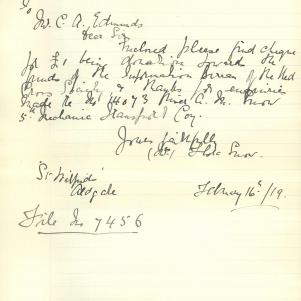 To
Mr. C. A. Edmunds
Dear Sir
Enclosed please find cheque
for £1 being donation toward the
funds of the Information Bureau of the Red
Cross Society & thanks for enquiries
made re No 14073 Driver C. M. Snow
5th Mechanic Transport Coy.
Yours faithfully
Snow
"St Wilfrids"
Aldgate
February 16th/19.
File No 7456